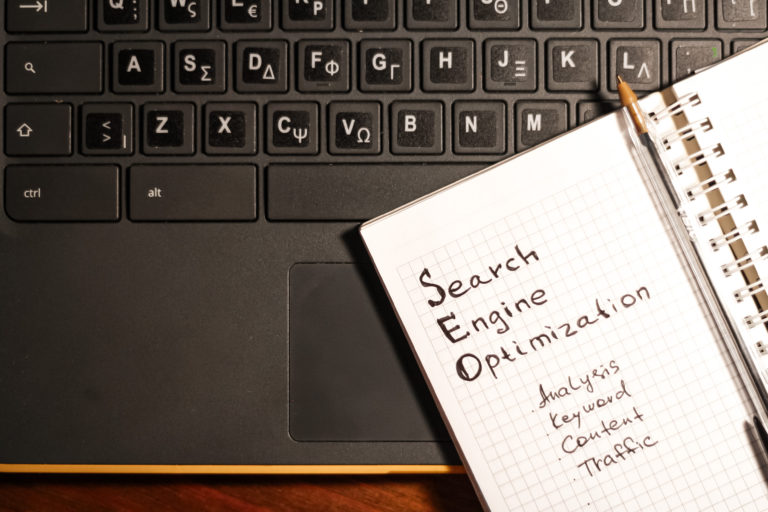 Q W ς E € R P Θ
A S Σ D Δ F Φ G Γ H J Ξ K L Λ
< > | Z X C Ψ V Ω B N M
ctrl alt
Search
Engine
Optimization
. Analysis
. Keyword
. Content
. Traffic
.